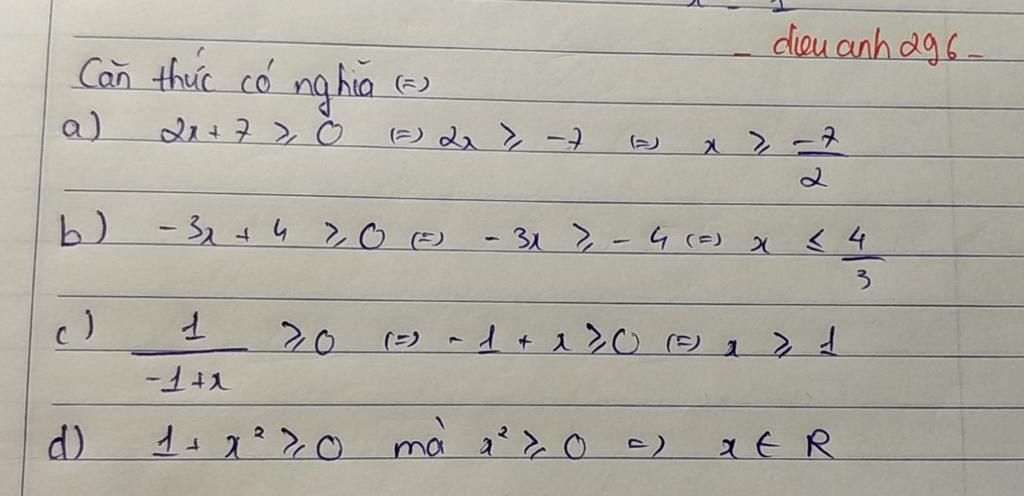 - dieu anh 296 -
Căn thức có nghĩa (=)
a) 2x + 7 ≥ 0 (=) 2x ≥ -7 (=) x ≥ -7/2
b) -3x + 4 ≥ 0 (=) -3x ≥ -4 (=) x ≤ 4/3
c) 1/(-1+x) ≥ 0 (=) -1 + x ≥ 0 (=) x ≥ 1
d) 1 + x² ≥ 0 mà x² ≥ 0 =) x ∈ R